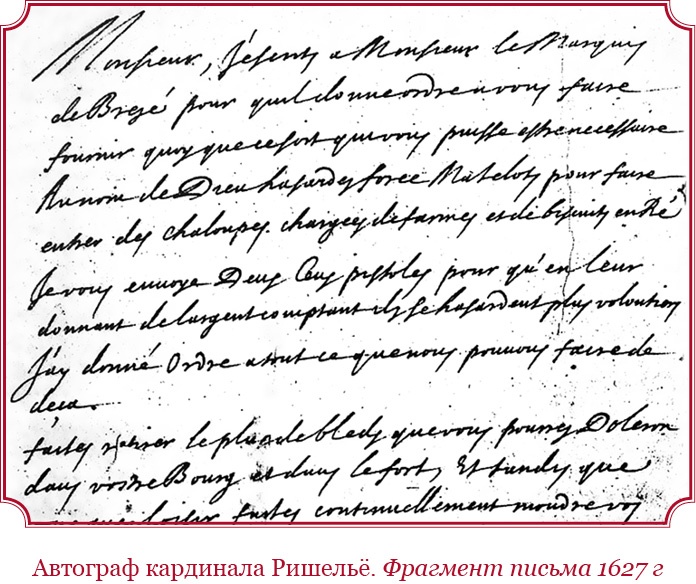 Monsieur, J'escrits a Monsieur le Marquis
de Brezé pour quil donne ordre a vous faire
fournir quoy que ce soit qui vous puisse estre necessaire
Au nom de Dieu hasardes force Matelots pour faire
entrer des chaloupes chargees de farines et de biscuits en Ré
Je vous envoye Deux Cens pistoles pour qu'en leur
donnant de largent comptant ils se hasardent plus
J'ay donné Ordre a tout ce que nous pouvons faire de
deca.
faites retirer le plus de bleds que vous pourres Doleron
dans vostre Bourg et dans le fort, Et tandis que
faites continuellement moudre vos
Автограф кардинала Ришельё. Фрагмент письма 1627 г